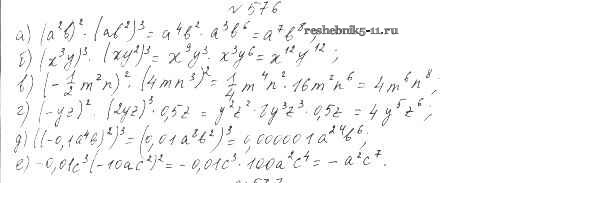 № 576
а) (a²b)² · (ab²)³ = a⁴b² · a³b⁶ = a⁷b⁸ reshebnik5-11.ru
б) (x³y)³ · (xy²)³ = x⁹y³ · x³y⁶ = x¹²y¹² ;
в) (-1/2 m²n)² · (4mn³)² = 1/4 m⁴n² · 16m²n⁶ = 4m⁶n⁸ ;
г) (-yz)² · (2yz)³ · 0,5z = y²z² · 8y³z³ · 0,5z = 4y⁵z⁶ ;
д) ((-0,1a⁴b)²)³ = (0,01a⁸b²)³ = 0,000001a²⁴b⁶ ;
е) -0,01c³(-10ac²)² = -0,01c³ · 100a²c⁴ = -a²c⁷ .